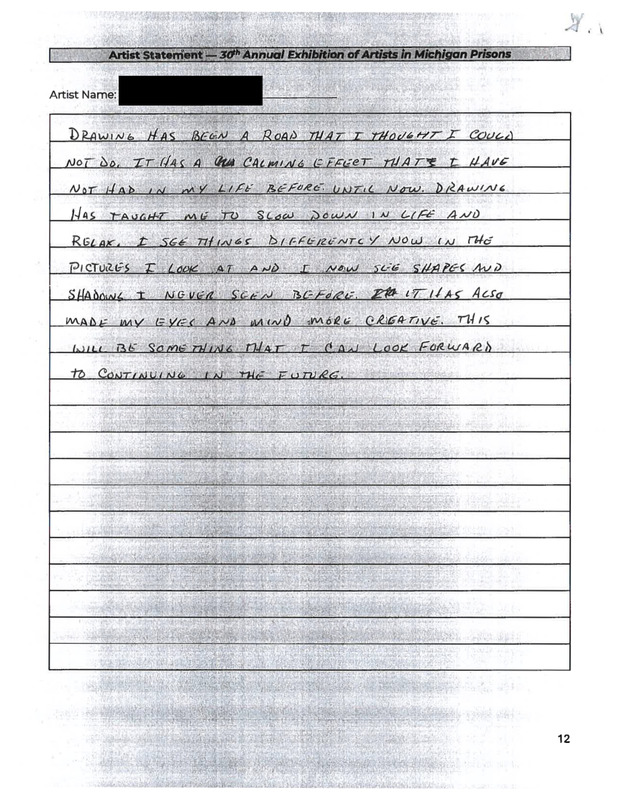 Artist Statement — 30th Annual Exhibition of Artists in Michigan Prisons
Artist Name:
DRAWING HAS BEEN A ROAD THAT I THOUGHT I COULD
NOT DO. IT HAS A CALMING EFFECT THAT I HAVE
NOT HAD IN MY LIFE BEFORE UNTIL NOW. DRAWING
HAS TAUGHT ME TO SLOW DOWN IN LIFE AND
RELAX. I SEE THINGS DIFFERENTLY NOW IN THE
PICTURES I LOOK AT AND I NOW SEE SHAPES AND
SHADING I NEVER SEEN BEFORE. IT HAS ALSO
MADE MY EYES AND MIND MORE CREATIVE. THIS
WILL BE SOMETHING THAT I CAN LOOK FORWARD
TO CONTINUING IN THE FUTURE.
12